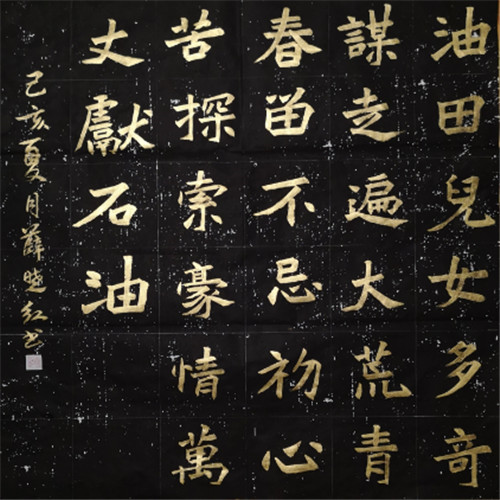 油田兒女多奇
謀走遍大荒青
春留不忌初心
苦探索豪情萬
丈獻石油
己亥夏月薛晓红书